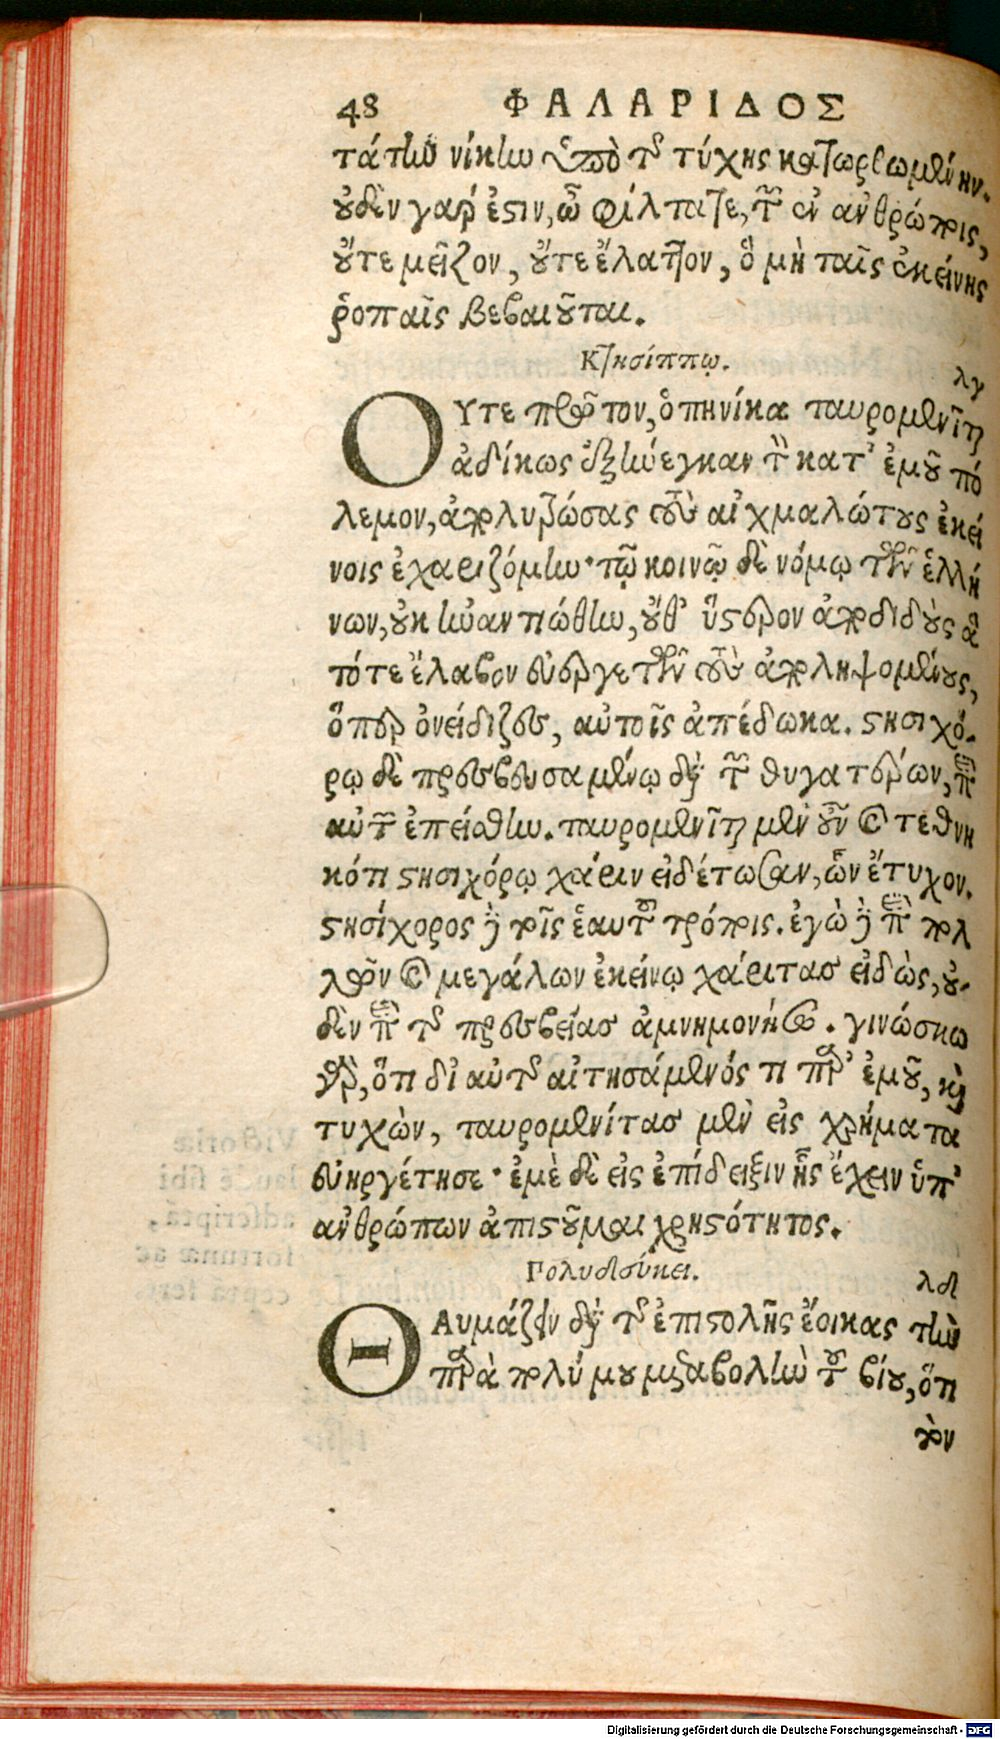 48 ΦΑΛΑΡΙΔΟΣ
τάτην νίκην ὑπὸ τῆς τύχης κατωρθωμένην.
οὐδὲν γάρ ἐστιν, ὦ φίλτατε, τῶν ἐν ἀνθρώποις,
οὔτε μεῖζον, οὔτε ἔλαττον, ὃ μὴ ταῖς ἐκείνης
ῥοπαῖς βεβαιοῦται.
Κτησίππῳ. λγ
ΟΥΤΕ πρῶτον, ὁπηνίκα ταυρομενῖται
ἀδίκως ἐξήνεγκαν τὸν κατ' ἐμοῦ πό
λεμον, ἀπολυτρώσας τοὺς αἰχμαλώτους ἐκεί
νοις ἐχαριζόμην· τῷ κοινῷ δὲ νόμῳ τῶν ἑλλή
νων, οὐκ ἠναντιώθην, οὔθ' ὕστερον ἀποδιδοὺς ἃ
τότε ἔλαβον εὐεργετεῖν τοὺς ἀποληψομένους,
ὅπερ ὀνειδίζεις, αὐτοῖς ἀπέδωκα. στησιχό-
ρῳ δὲ πρεσβευσαμένῳ διὰ τῶν θυγατέρων, περὶ
αὐτῶν ἐπείσθην. ταυρομενῖται μὲν οὖν καὶ τεθνη
κότι στησιχόρῳ χάριν εἰδέτωσαν, ὧν ἔτυχον.
στησίχορος δὲ τοῖς ἑαυτοῦ τρόποις. ἐγὼ δὲ περὶ πολ
λῶν καὶ μεγάλων ἐκείνῳ χάριτας εἰδὼς, οὐ-
δὲν περὶ τῆς πρεσβείας ἀμνημονήσω. γινώσκω
γὰρ, ὅτι δι' αὐτῆς αἰτησάμενός τι παρ' ἐμοῦ, καὶ
τυχὼν, ταυρομενίτας μὲν εἰς χρήματα
εὐηργέτησε· ἐμὲ δὲ εἰς ἐπίδειξιν ἧς ἔχειν ὑπ'
ἀνθρώπων ἀπιστοῦμαι χρηστότητος.
Πολυδεύκει. λδ
ΘΑυμάζειν διὰ τῆς ἐπιστολῆς ἔοικας τὴν
παρὰ πολύ μου μεταβολὴν τοῦ βίου, ὅτι
τὸν
Digitalisierung gefördert durch die Deutsche Forschungsgemeinschaft - DFG